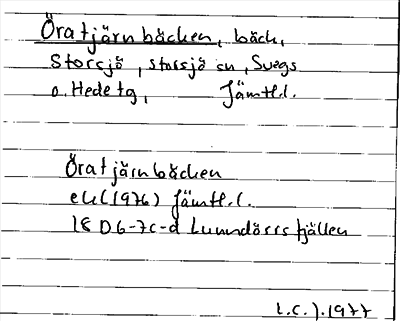 Öratjärnbäcken, bäck,
Storsjö, storsjö sn, Svegs
o. Hede tg, Jämtl.l.
Öratjärnbäcken
ek (1976) Jämtl.l.
18 D 6-7c-d Lunndörrsfjällen
1977